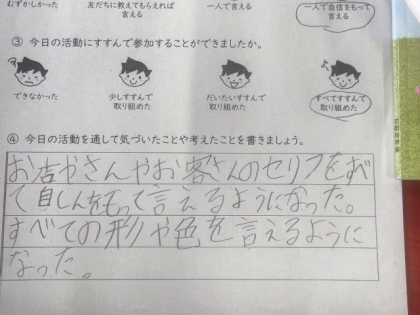 むずかしかった 友だちに教えてもらえれば言える 一人で言える 一人で自信をもって言える
③ 今日の活動にすすんで参加することができましたか。
できなかった 少しすすんで取り組めた だいたいすすんで取り組めた すべてすすんで取り組めた
④ 今日の活動を通して気づいたことや考えたことを書きましょう。
お店やさんやお客さんのセリフをすべ
て自しんをもって言えるようになった。
すべての形や色を言えるように
なった。